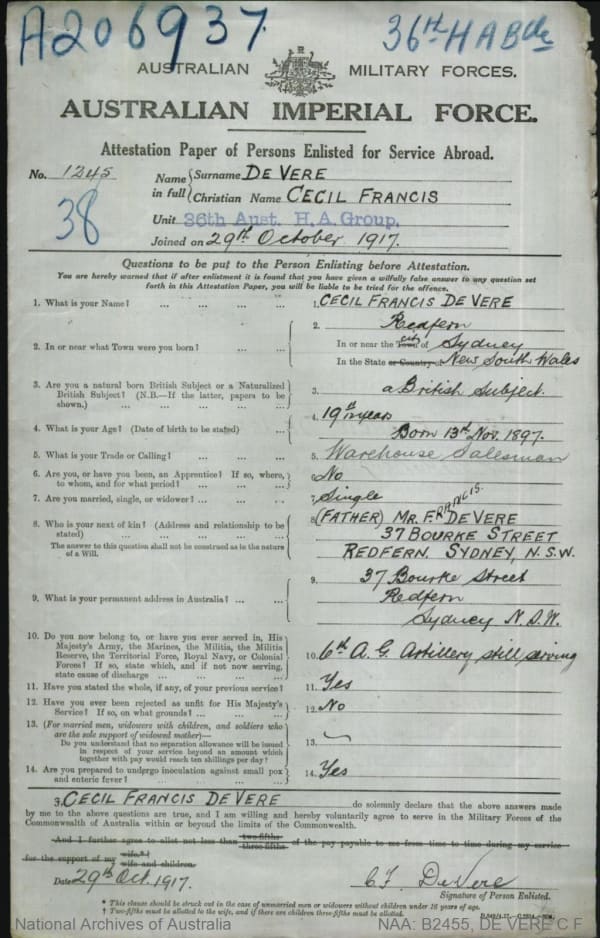 A206937
36TH H A Bde
AUSTRALIAN MILITARY FORCES.
AUSTRALIAN IMPERIAL FORCE.
Attestation Paper of Persons Enlisted for Service Abroad.
No. 1245
38
Name in full
Surname DE VERE
Christian Name CECIL FRANCIS
Unit 36th Aust. H.A. Group.
Joined on 29th October 1917.
Questions to be put to the Person Enlisting before Attestation.
You are hereby warned that if after enlistment it is found that you have given a wilfully false answer to any question set
forth in this Attestation Paper, you will be liable to be tried for the offence.
1. What is your Name? ... ... ... ... 1. CECIL FRANCIS DE VERE
2. In or near what Town were you born? ... ... 2. Redfern
In or near the Town city of Sydney
In the State or Country of New South Wales
3. Are you a natural born British Subject or a Naturalized
British Subject? (N.B.—If the latter, papers to be
shown.) ... ... ... ... ... 3. a British Subject.
4. What is your Age? (Date of birth to be stated) ... 4. 19
Born 13th Nov. 1897.
5. What is your Trade or Calling? ... ... ... 5. Warehouse Salesman
6. Are you, or have you been, an Apprentice? If so, where,
to whom, and for what period? ... ... ... 6. No
7. Are you married, single, or widower? ... ... 7. Single
8. Who is your next of kin? (Address and relationship to be
stated) ... ... ... ... ...
The answer to this question shall not be construed as in the nature
of a Will.
8. (FATHER) MR. FRANCIS DE VERE
37 BOURKE STREET
REDFERN. SYDNEY, N.S.W.
9. What is your permanent address in Australia? ... ... 9. 37 Bourke Street
Redfern
Sydney N.S.W.
10. Do you now belong to, or have you ever served in, His
Majesty's Army, the Marines, the Militia, the Militia
Reserve, the Territorial Force, Royal Navy, or Colonial
Forces? If so, state which, and if not now serving,
state cause of discharge ... ... ... ... 10. 6th A. G. Artillery still serving
11. Have you stated the whole, if any, of your previous service? 11. Yes
12. Have you ever been rejected as unfit for His Majesty's
Service? If so, on what grounds? ... ... ... 12. No
13. (For married men, widowers with children, and soldiers who
are the sole support of widowed mother)—
Do you understand that no separation allowance will be issued
in respect of your service beyond an amount which
together with pay would reach ten shillings per day?
13.
14. Are you prepared to undergo inoculation against small pox
and enteric fever? ... ... ... ... 14. Yes
I, CECIL FRANCIS DE VERE do solemnly declare that the above answers made
by me to the above questions are true, and I am willing and hereby voluntarily agree to serve in the Military Forces of the
Commonwealth of Australia within or beyond the limits of the Commonwealth.
And I further agree to allot not less than two-fifths three-fifths of the pay payable to me from time to time during my service
for the support of my wife.* † wife and children.
Date 29th Oct. 1917.
C F De Vere
Signature of Person Enlisted.
* This clause should be struck out in the case of unmarried men or widowers without children under 16 years of age.
† Two-fifths must be allotted to the wife, and if there are children three-fifths must be allotted.
National Archives of Australia
NAA: B2455, DE VERE C F